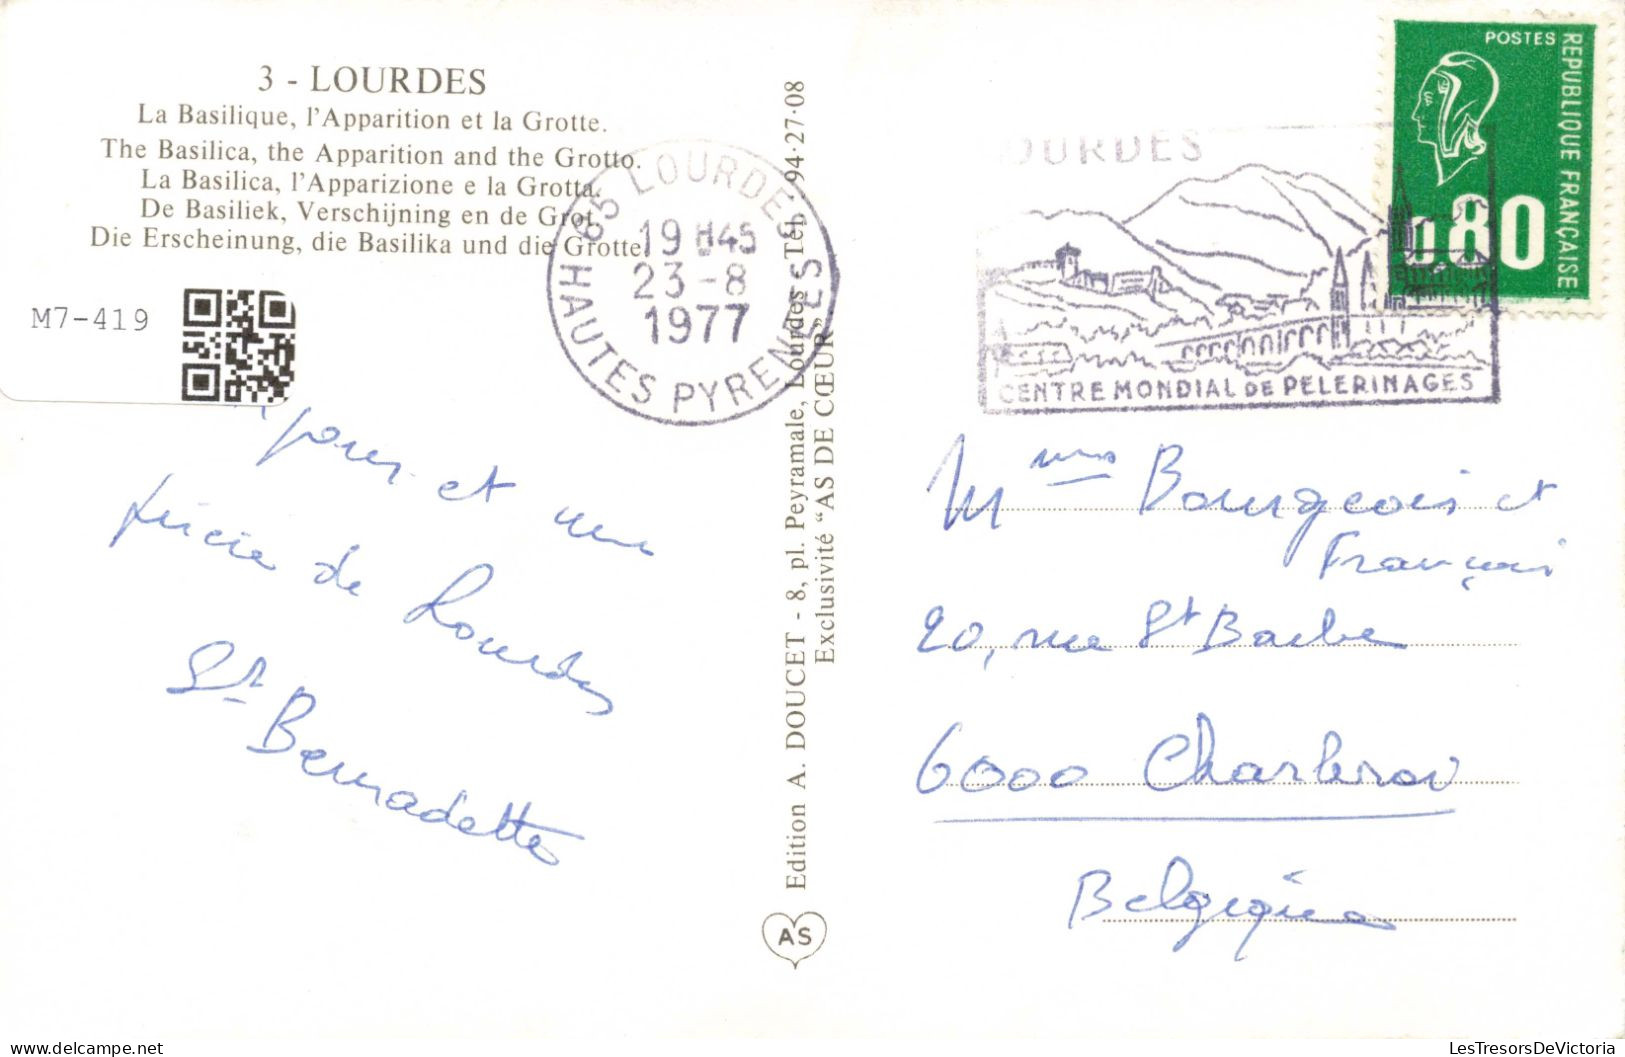 3 - LOURDES
La Basilique, l'Apparition et la Grotte.
The Basilica, the Apparition and the Grotto.
La Basilica, l'Apparizione e la Grotta.
De Basiliek, Verschijning en de Grot.
Die Erscheinung, die Basilika und die Grotte.
M7-419
et une
de Lourdes
St Bernadette
65 LOURDES
19H45
23-8
1977
HAUTES PYRENEES
Edition A. DOUCET - 8, pl. Peyramale, Lourdes - Tél. 94-27-08
Exclusivité "AS DE CŒUR"
AS
LOURDES
CENTRE MONDIAL DE PELERINAGES
POSTES
REPUBLIQUE FRANÇAISE
0.80
Bourgeois et
François
20, rue St Barbe
6000 Charleroi
Belgique
LesTresorsDeVictoria